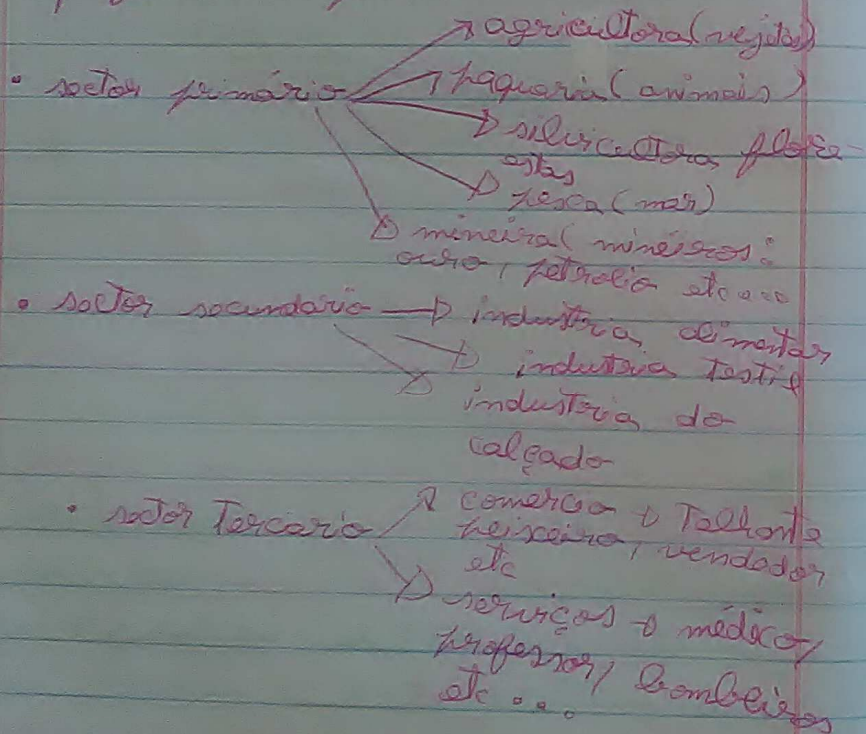 → agricultora (vejtas)
• sector primário → paquaria (animais)
→ silvicultora, flore-
estas
→ pesca (mar)
→ mineira (minéiros:
ouro, petrolio etc...
• sector secundário → industria alimentar
→ industria testil
→ industria do
calçado
• sector Tercario → comercio → Talhante
peixeiro, vendador
etc
→ serviços → médico,
professor, bombeiros
etc...